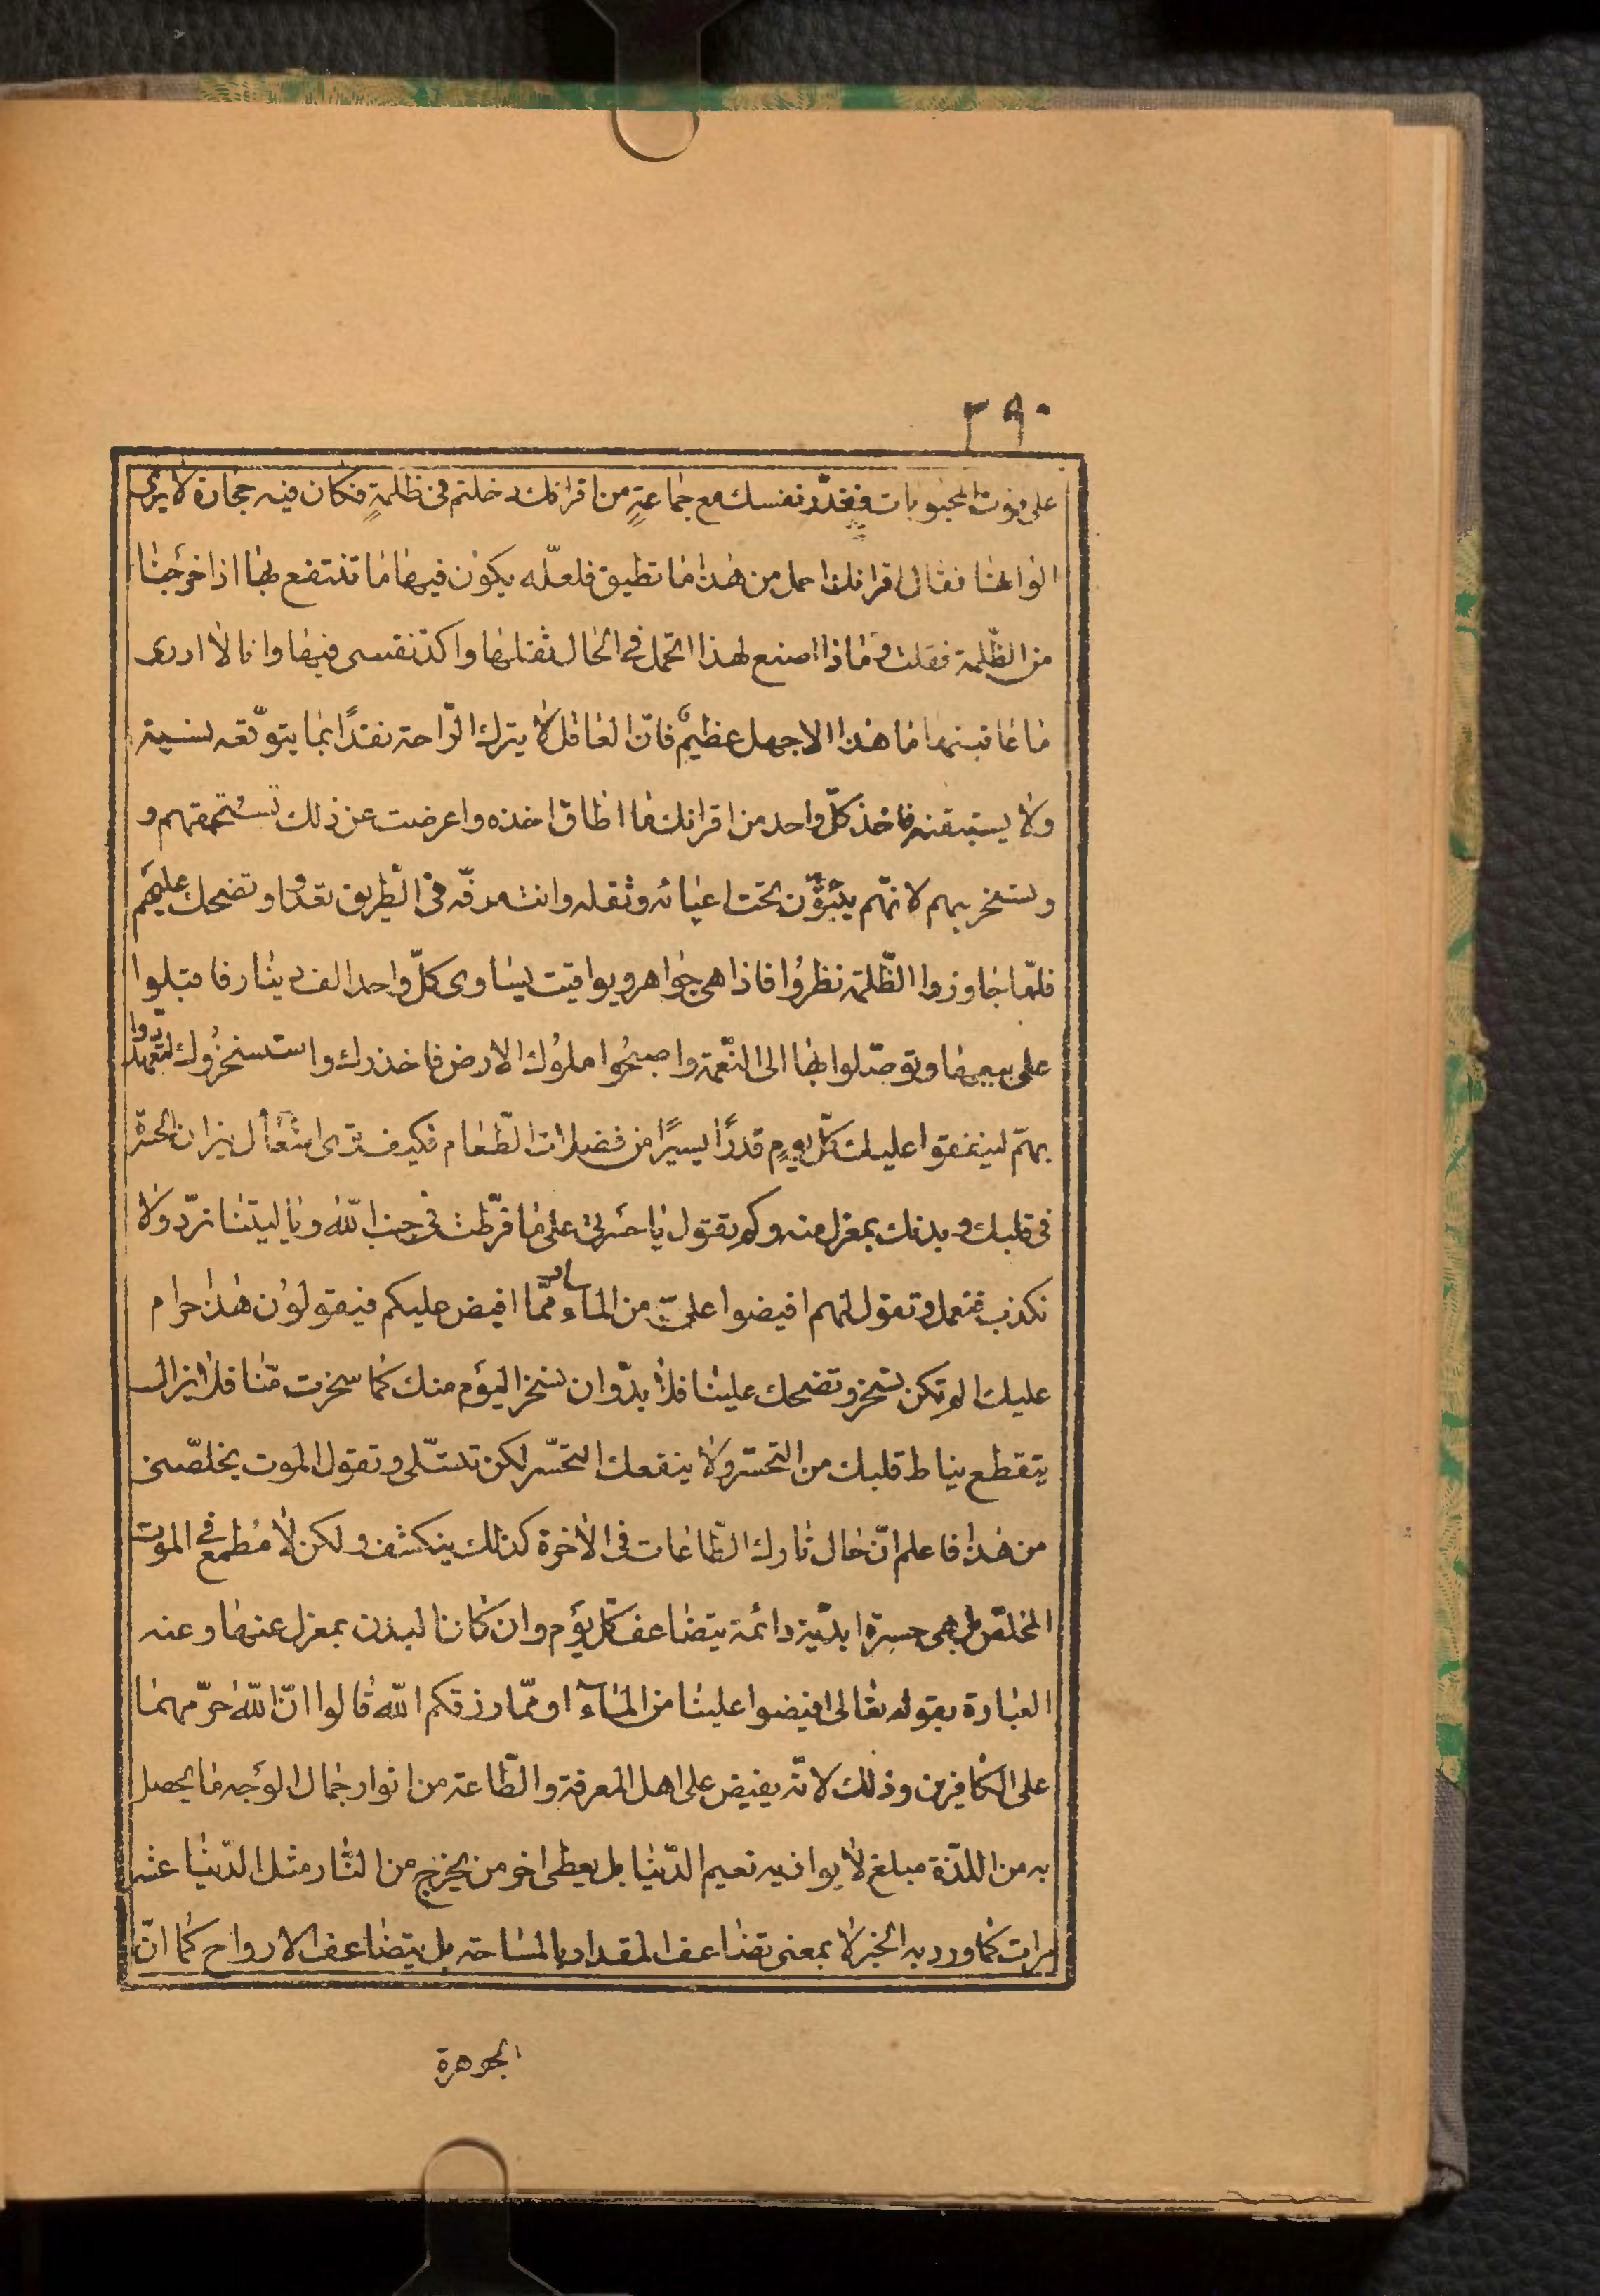 ٢٩٠
على فوت المحبوبات فقدّر نفسك مع جماعةٍ من اقرانك دخلتم فى ظلمةٍ فكان فيه حجارة لا يرى
الوانها فقال اقرانك احمل من هذا ما تطيق فلعلّه يكون فيها ما تنتفع بها اذا خرجنا
من الظّلمة فقلت و ماذا اصنع لهذا اتحمل فى الحال ثقلها و اكدّ نفسى فيها و انا لا ادرى
ما عاقبتها ما هذا الا جهل عظيمٌ فانّ العاقل لا يترك الرّاحة نقدًا بما يتوقّعه نسية
ولا يستيقنه فاخذ كلّ واحد من اقرانك ما اطاق اخذه و اعرضت عن ذلك تستحمقهم و
و تسخر بهم لانّهم ينؤن تحت اعيائه و ثقله و انت مرفّه فى الطريق تعدو و تضحك عليهم
فلمّا جاوزوا الظّلمة نظروا فاذا هى جواهر و يواقيت يساوى كلّ واحد الف دينار فاقبلوا
على بيعها و توصّلوا بها الى النّعمة و اصبحوا ملوك الارض فاخذرك و استسخروك لتعهّد دوا
بهمّ لينفقوا عليك كلّ يومٍ قدرًا يسيرًا من فضلات الطّعام فكيف ترى اشتعال نيران الحسرة
فى قلبك و بدنك بمعزل منه و كم تقول يا حسرتى على ما فرّطت فى جنب اللّه و يا ليتنا نردّ ولا
نكذب فنعمل و تقول لهم افيضوا علىّ من الماء ممّا افيض عليكم فيقولون هذا حرام
عليك الم تكن تسخر و تضحك علينا فلا بدّ و ان نسخر اليوم منك كما سخرت منّا فلا يزال
يتقطع نياط قلبك من التحسّر ولا ينفعك التحسّر لكن تتسلّى و تقول الموت يخلصنى
من هذا فاعلم انّ حال تارك الطّاعات فى الاخرة كذلك ينكشف و لكن لا مطمع فى الموت
المخلّص بل هى حسرة ابديّة دائمة يتضاعف كلّ يوم و ان كان البدن بمعزل عنها و عنه
العبارة بقوله تعالى افيضوا علينا من الماء او ممّا رزقكم اللّه قالوا انّ اللّه حرّمهما
على الكافرين و ذلك لانّه يفيض على اهل المعرفة و الطّاعة من انوار جمال الوجه ما يحصل
به من اللذّة مبلغ لا يوازيه نعيم الدّنيا بل يعطى اخر من يخرج من النّار مثل الدّنيا عشر
مرات كما ورد به الخبر لا بمعنى تضاعف المقدار بالمساحة بل يتضاعف الارواح كما انّ
الجوهرة